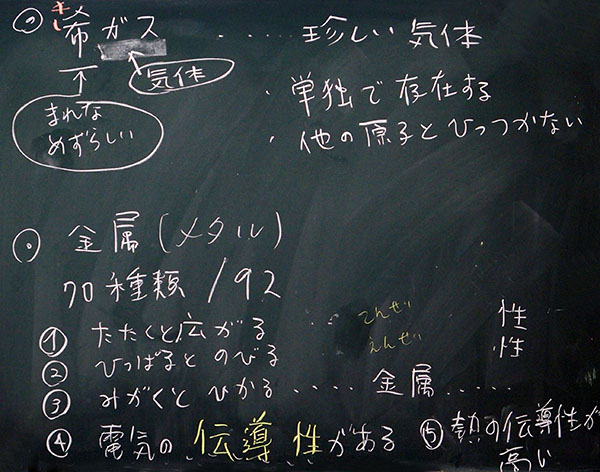 き
希ガス ‥‥ 珍しい気体
気体
まれな
めずらしい
・単独で存在する
・他の原子とひっつかない
金属(メタル)
70種類/92
① たたくと広がる ‥ てんせい 性
② ひっぱるとのびる えんせい 性
③ みがくとひかる ‥‥ 金属‥‥‥
④ 電気の伝導性がある ⑤ 熱の伝導性が
高い